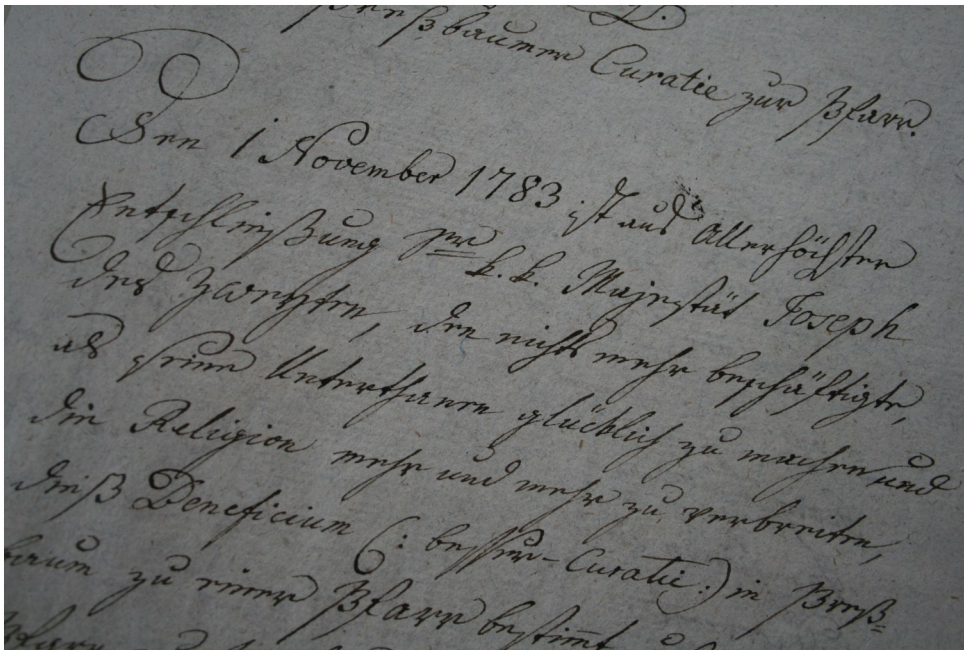 Preßbaumer Curatie zur Pfarr.
Den 1 November 1783 ist aus Allerhöchster
Entschließung Sr k. k. Majestät Joseph
des Zweyten, den nichts mehr beschäftigte,
als seine Unterthanen glücklich zu machen und
die Religion mehr und mehr zu verbreiten,
dieß Beneficium (: besser-Curatie :) in Preß=
baum zu einer Pfarr bestimmt